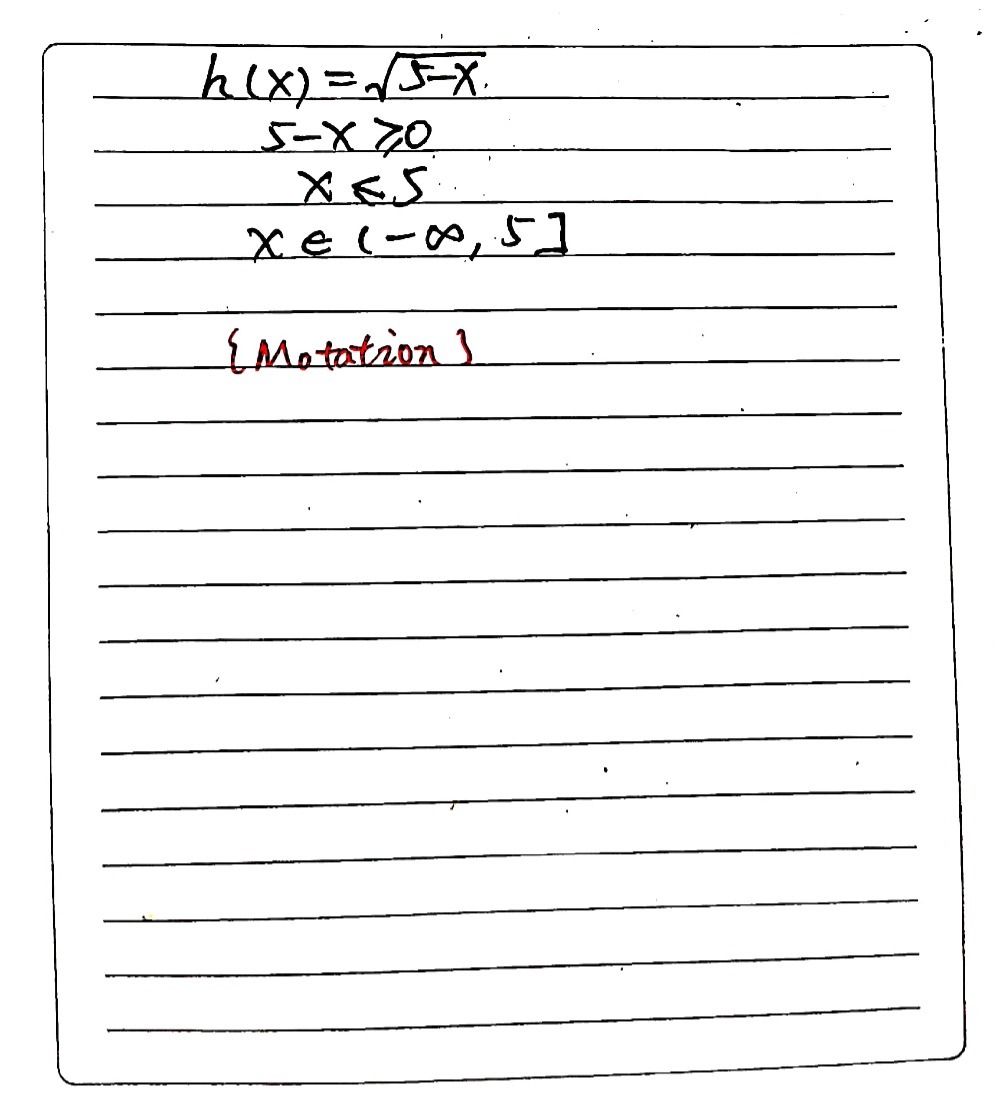 h(x) = √5-x.
5-x ⩾0
x ⩽ 5
x ∈ (-∞, 5]
{Motation}